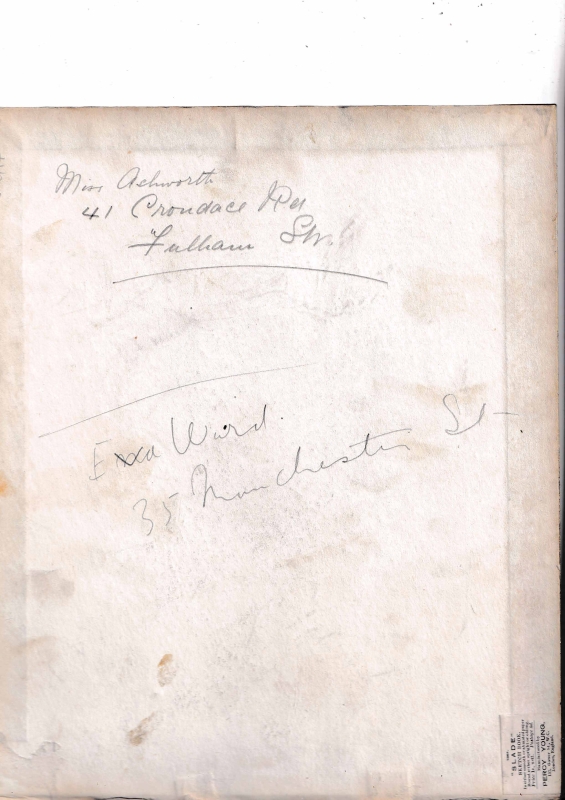 Miss Ashworth
41 Crondace Rd
Fulham SW.6
Ward.
35 Manchester St
"SLADE"
SKETCH BOOK.
PERCY YOUNG,